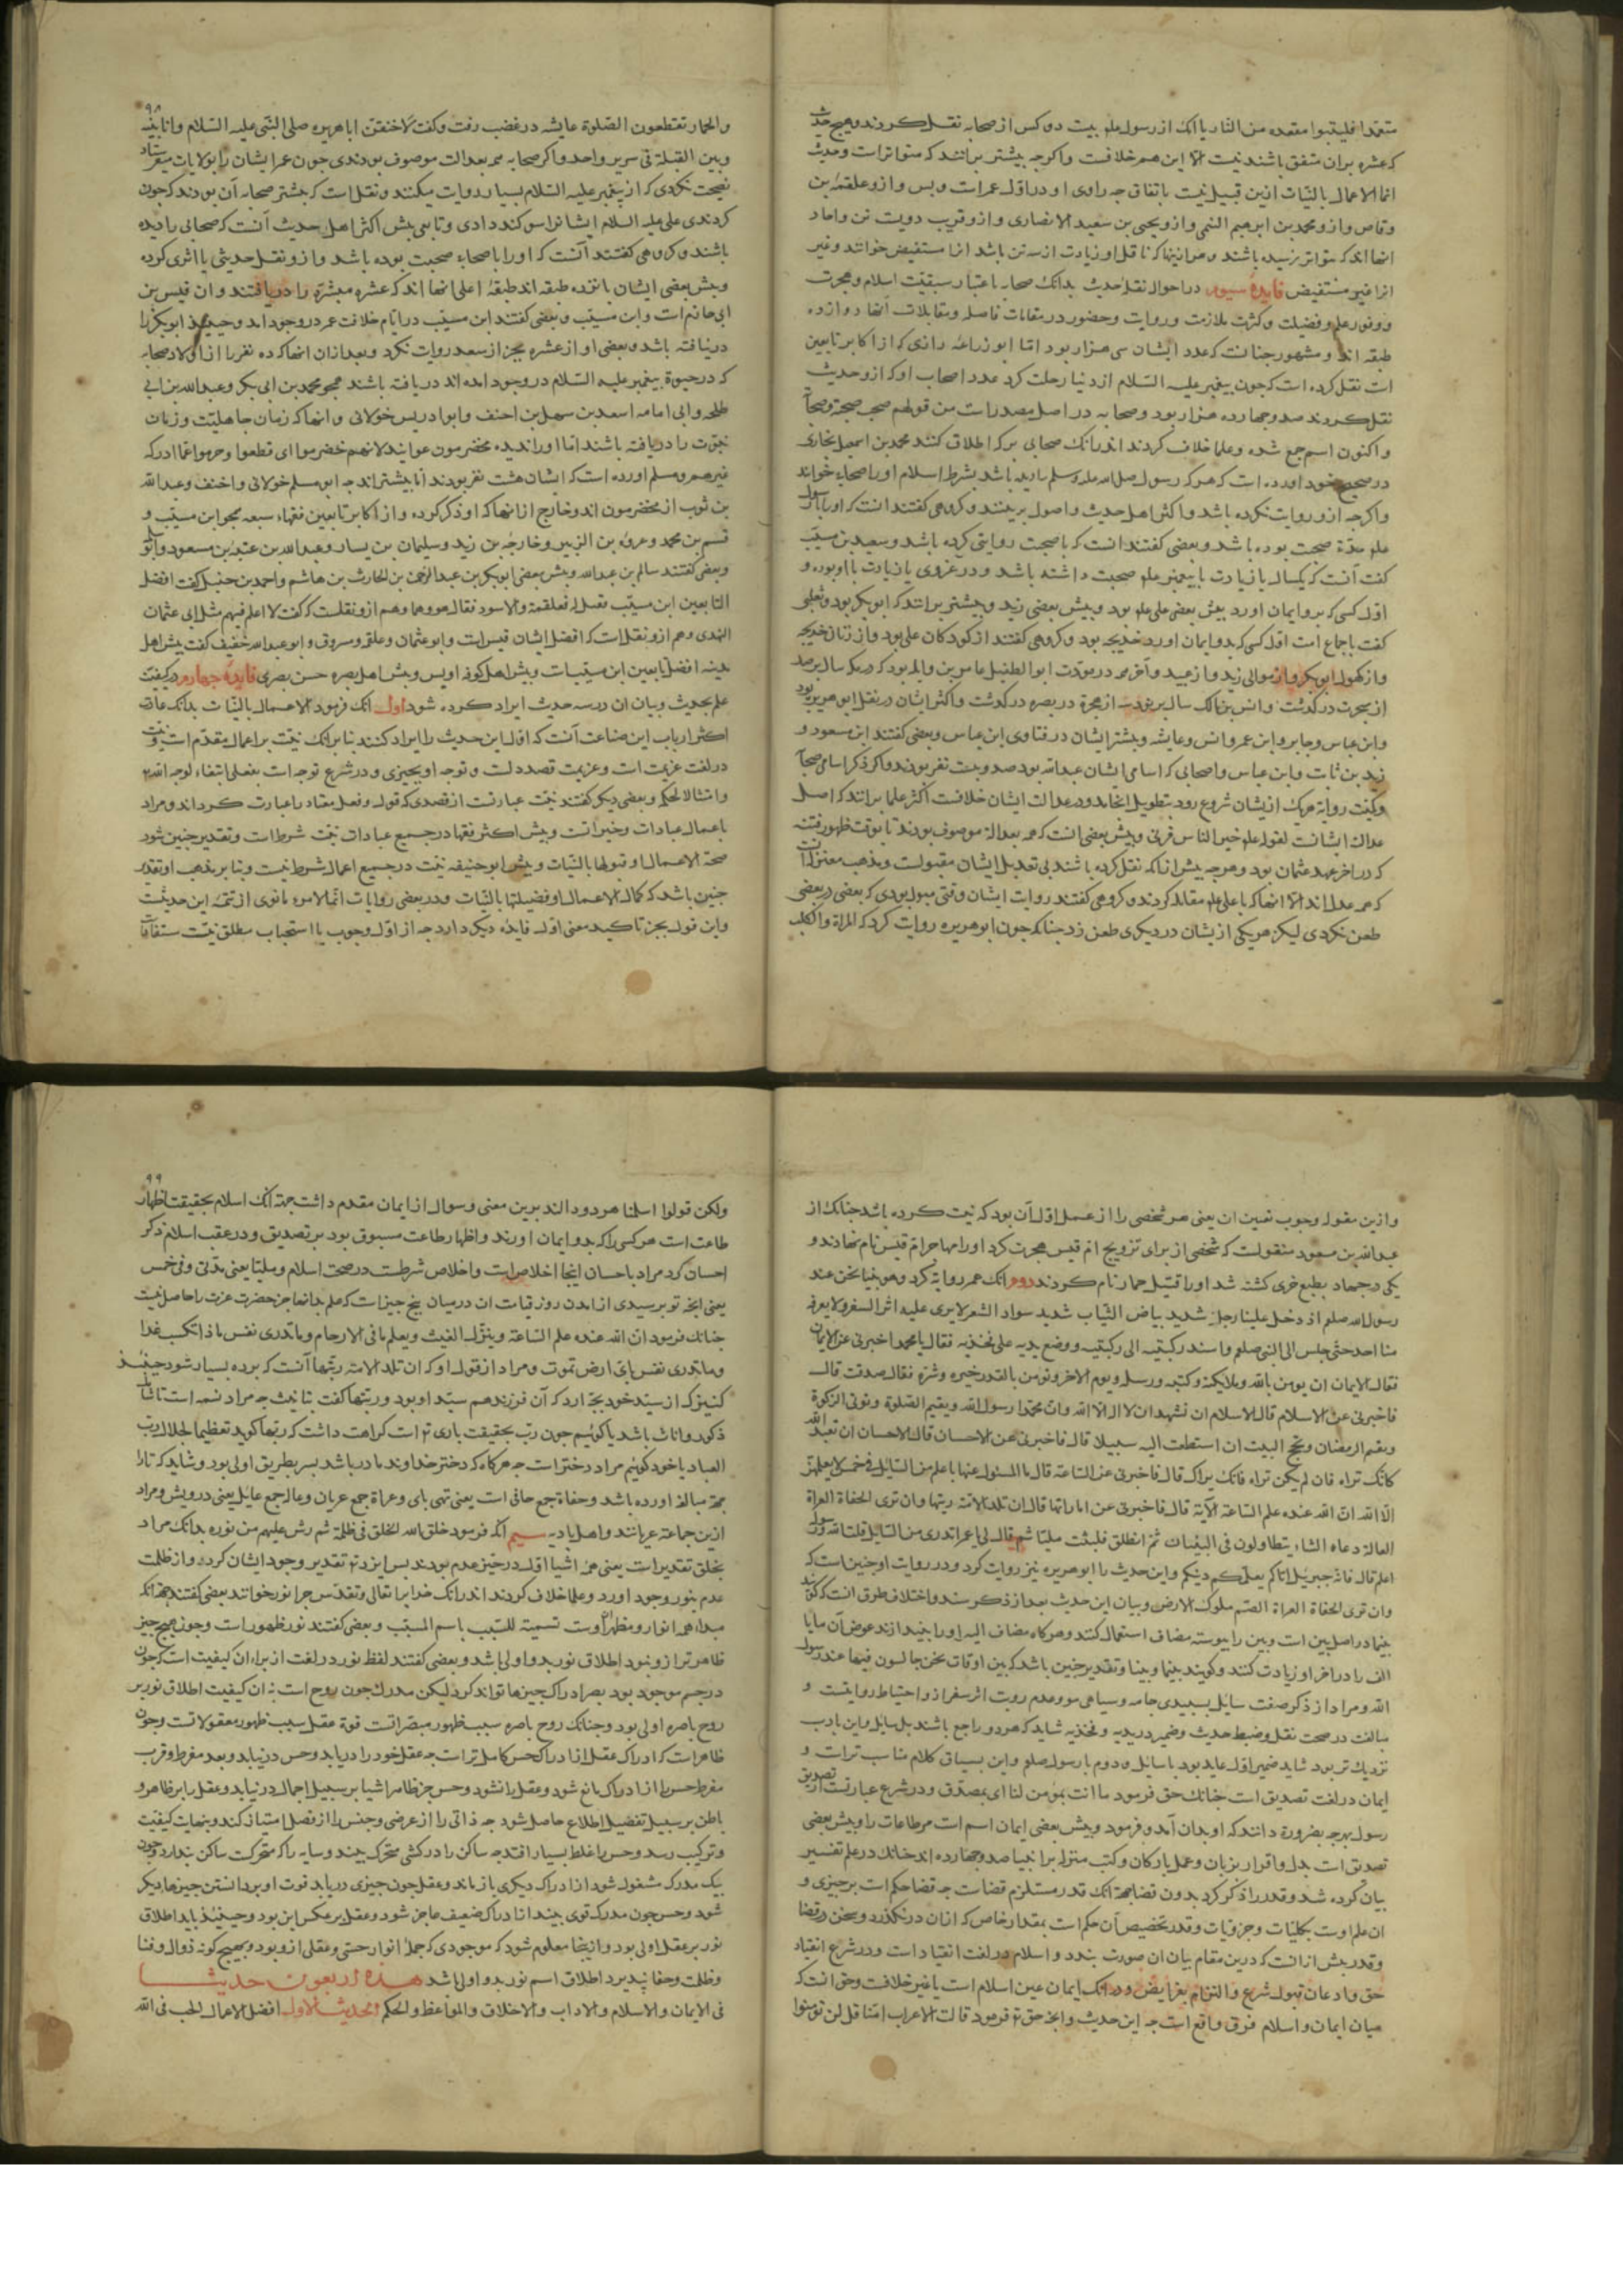 متعمدا فلیتبوا مقعده من النار یا آنک از رسول علم بیست دو کس از صحابه نقل کردند و هیچ حدیث
که عشره بران متفق باشند نیست الا این هم خلافست و اگرچه بیشتر برانند که متواترات و حدیث
انما الاعمال بالنیات ازین قبیل نیست باتفاق چه راوی او در اول عمرست و بس و ازو علقمه بن
وقاص و ازو محمد بن ابرهیم التیمی و ازو یحیی بن سعید الانصاری و ازو قریب دویست تن و احاد
انها اند که بتواتر نرسیده باشند و هر انینها که ناقل او زیادت از سه تن باشد انرا مستفیض خوانند و غیر
انرا غیر مستفیض فایدهٔ سیوم در احوال نقلهٔ حدیث بدانک صحابه باعتبار سبقیت اسلام و هجرت
و وفور علم و فضیلت و کثرت ملازمت و روایت و حضور در مقامات فاصله و مقابلات انها دوازده
طبقه اند و مشهور چنانست که عدد ایشان سی هزار بود اما ابو زراعه رازی که از اکابر تابعین
است نقل کرده است که چون پیغمبر علیه السلام از دنیا رحلت کرد عدد اصحاب او که ازو حدیث
نقل کردند صد و چهارده هزار بود و صحابه در اصل مصدرست من قولهم صحب صحبة و صحابة
و اکنون اسم جمع شده و علما خلاف کردند اندرانک صحابی بر که اطلاق کنند محمد بن اسمعیل بخاری
در صحیح خود اورده است که هر که رسول صلی الله علیه وسلم را دیده باشد بشرط اسلام او را صحابه خوانند
و اگرچه ازو روایت نکرده باشد و اکثر اهل حدیث و اصول برینند و گروهی گفتند انست که او را با رسول
علم مدة صحبت بوده باشد و بعضی گفتند انست که با صحبت روایتی کرده باشد و سعید بن مسیب
گفت آنست که یکسال یا زیادت با پیغمبر علم صحبت داشته باشد و در غزوی یا زیادت با او بوده و
اول کسی که برو ایمان اورد پیش بعضی علی علم بود و پیش بعضی زید و بیشتر برانند که ابوبکر بود و ثعلبی
گفت باجماع امت اول کسی که بدو ایمان اورد خدیجه بود و گروهی گفتند از کودکان علی بود و از زنان خدیجه
و از کهول ابوبکر و از موالی زید و از عبید و آخر همه در موت ابو الطفیل عامر بن واثله بود که در یک سال بر صد
از هجرت درگذشت و انس بن مالک سال بر نود سه از هجرة در بصره درگذشت و اکثر ایشان در نقل ابو هریره بود
و ابن عباس و جابر و ابن عمر و انس و عایشه و بیشتر ایشان در فتاوی ابن عباس و بعضی گفتند ابن مسعود و
زید بن ثابت و ابن عباس و اصحابی که اسامی ایشان عبدالله بود صد و بیست نفر بودند و اگر ذکر اسامی صحابه
و کیفیت روایة هریک ازیشان شروع رود بتطویل انجامد و در عدالت ایشان خلافست اکثر علما برانند که اصل
عدالت ایشانست لقوله علم خیر الناس قرنی و پیش بعضی انست که همه بعدالة موصوف بودند تا بوقت ظهور فتنه
که در اخر عهد عثمان بود و هرچه پیش ازانکه نقل کرده باشند بی تعدیل ایشان مقبولست و مذهب معتزله انست
که همه عدل اند الا انها که با علی علم مقاتله کردند و گروهی گفتند روایت ایشان وقتی مقبول بودی که بعضی در بعضی
طعن نکردی لیکن هریکی ازیشان در دیگری طعن زد چنانکه چون ابو هریره روایت کرد که المراة و الکلب
٩٨
والحمار تقطعون الصلوة عایشه در غضب رفت و گفت لاخنقن ابا هریره صلی النبی علیه السلام وانا بینه
وبین القبلة فی سریر واحد و اگر صحابه همه بعدالت موصوف بودندی چون عمر ایشان را بولایات میفرستاد
نصیحت نکردی که از پیغمبر علیه السلام بسیار روایت میکنند و نقل است که بیشتر صحابه آن بودند که چون
کردندی علی علیه السلام ایشانرا سوگند دادی و تابعی پیش اکثر اهل حدیث آنست که صحابی را دیده
باشند و گروهی گفتند آنست که او را با صحابه صحبت بوده باشد و ازو نقل حدیثی یا اثری کرده
و پیش بعضی ایشان پانزده طبقه اند طبقهٔ اعلی انها اند که عشره مبشره را دریافتند و ان قیس بن
ابی حازم است و ابن مسیب و بعضی گفتند ابن مسیب در ایام خلافت عمر در وجود امد و حینئذ ابوبکر را
درنیافته باشد و بعضی او از عشره بجز از سعد روایت نکرد و بعد ازان انها که ده نفر را از اولاد صحابه
که در حیوة پیغمبر علیه السلام در وجود امده اند دریافته باشند همچو محمد بن ابی بکر و عبدالله بن ابی
طلحه و ابی امامه اسعد بن سهل بن احنف و ابو ادریس خولانی و انها که زمان جاهلیت و زمان
نبوت را دریافته باشند اما او را ندیده مخضرمون خوانند لانهم خضرموا ای قطعوا و حرموا عما ادرکه
غیرهم و مسلم اورده است که ایشان هشت نفر بودند اما بیشتر اند چه ابو مسلم خولانی و احنف و عبدالله
بن ثوب از مخضرمون اند و خارج ازانها که او ذکر کرده و از اکابر تابعین فقهاء سبعه همچو ابن مسیب و
قسم بن محمد و عروه بن الزبیر و خارجه بن زید و سلیمان بن یسار و عبدالله بن عتبه بن مسعود
و بعضی گفتند سالم بن عبدالله و پیش بعضی ابوبکر بن عبد الرحمن بن الحارث بن هاشم و احمد بن حنبل گفت افضل
التابعین ابن مسیب فقیل له فعلقمة والاسود فقال هو وهما و هم ازو نقلست که گفت لا اعلم فیهم مثل ابی عثمان
النهدی و هم ازو نقل است که افضل ایشان قیس است و ابو عثمان و علقمه و مسروق و ابو عبدالله خفیف گفت پیش اهل
مدینه افضل تابعین ابن مسیب است و پیش اهل کوفه اویس و پیش اهل بصره حسن بصری فایدهٔ چهارم در کیفیت
علم بحدیث و بیان ان در سه حدیث ایراد کرده شود اول انک فرمود الاعمال بالنیات بدانک عادت
اکثر ارباب این صناعت آنست که اول این حدیث را ایراد کنند بنا برانک نیت بر اعمال مقدم است و نیت
در لغت عزیمت است و عزیمت قصد دلست و توجه او بچیزی و در شرع توجه است بفعلی ابتغاء لوجه الله
وامتثالا لحکمه و بعضی دیگر گفتند نیت عبارتست از قصدی که قول و فعل معتاد را عبارت گرداند و مراد
باعمال عبادات و خیراتست و پیش اکثر فقها در جمیع عبادات نیت شرط است و تقدیر چنین شود
صحة الاعمال او قبولها بالنیات و پیش ابو حنیفه نیت در جمیع اعمال شرط نیست و بنا بر مذهب او تقدیر
چنین باشد که کمال الاعمال او فضیلتها بالنیات و در بعضی روایات انما لامرء ما نوی از تتمهٔ این حدیثست
و این قول بجز تاکید معنی اول فایدهٔ دیگر دارد چه از اول وجوب یا استحباب مطلق نیت مستفاد
وازین مقوله وجوب تعیین ان یعنی هر شخصی را از عمل اول آن بود که نیت کرده باشد چنانک از
عبدالله بن مسعود منقولست که شخصی از برای تزویج ام قیس هجرت کرد او را مهاجر ام قیس نام نهادند و
یکی در جهاد بطمع خری کشته شد او را قتیل حمار نام کردند دوم انک عمر روایة کرد و هو بینا نحن عند
رسول الله صلعم اذ دخل علینا رجل شدید بیاض الثیاب شدید سواد الشعر لا یری علیه اثر السفر ولا یعرفه
منا احد حتی جلس الی النبی صلعم واسند رکبتیه الی رکبتیه ووضع یدیه علی فخذیه فقال یا محمد اخبرنی عن الایمان
فقال الایمان ان یومن بالله وملایکته وکتبه ورسله ویوم الاخر وتومن بالقدر خیره وشره فقال صدقت قال
فاخبرنی عن الاسلام قال الاسلام ان تشهد ان لا اله الا الله وان محمدا رسول الله ویقیم الصلوة وتوتی الزکوة
وتصوم رمضان وتحج البیت ان استطعت الیه سبیلا قال فاخبرنی عن الاحسان قال الاحسان ان تعبد الله
کانک تراه فان لم یکن تراه فانک یراک قال فاخبرنی عن الساعة قال ما المسئول عنها باعلم من السایل فی خمس لا یعلمهن
الا الله ان الله عنده علم الساعة الآیة قال فاخبرنی عن اماراتها قال ان تلد الامة ربتها وان تری الحفاة العراة
العالة دعاء الشاء یتطاولون فی البنیان ثم انطلق فلبثت ملیا ثم قال لی یا عمر اتدری من السایل قلت الله ورسوله
اعلم قال فانه جبریل اتاکم یعلمکم دینکم و این حدیث را ابو هریره نیز روایت کرد و در روایت او چنین است که
وان تری الحفاة العراة الصم ملوک الارض و بیان این حدیث بعد از ذکر سند و اختلاف طرق انست که گوید
بینما در اصل بین است و بین را پیوسته مضاف استعمال کنند و هرگاه مضاف الیه او را بیندازند عوض آن ما یا
الف را در اخر او زیادت کنند و گویند بینما و بینا و تقدیر چنین باشد که بین اوقات نحن جالسون فیها عند رسول
الله و مراد از ذکر صفت سایل بسپیدی جامه و سیاهی مو و عدم رویت اثر سفر ازو احتیاط روایتست و
مبالغت در صحت نقل و ضبط حدیث و ضمیر در یدیه و فخذیه شاید که هر دو راجع باشند بل سایل و این بادب
نزدیک تر بود شاید ضمیر اول عاید بود با سایل و دوم با رسول صلعم و این بسیاق کلام مناسب ترست و
ایمان در لغت تصدیق است چنانک حق فرمود ما انت بمومن لنا ای بمصدق و در شرع عبارتست از تصدیق
رسول بهرچه بضرورة دانند که او بدان آمد و فرمود و پیش بعضی ایمان اسم است مر طاعات را و پیش بعضی
تصدیق است بدل و اقرار بزبان و عمل بارکان و کتب منزله بر انبیا صد و چهارده اند چنانک در علم تفسیر
بیان کرده شد و قدر را ذکر کرد بدون قضا بجهة انک قدر مستلزم قضاست چه قضا حکم است بر چیزی و
ان علم اوست بکلیات و جزویات و قدر تخصیص آن حکم است بمقدار خاص که ازان درنگذرد و سخن در قضا
و قدر بیش ازانست که درین مقام بیان ان صورت بندد و اسلام در لغت انقیاد است و در شرع انقیاد
حق و اذعان قبول شرع و التزام بفرایض و در انک ایمان عین اسلام است یا غیر خلافست و حق انست که
میان ایمان و اسلام فرق واقع است چه این حدیث و انچه حق تع فرمود قالت الاعراب امنا قل لن تومنوا
٩٩
ولکن قولوا اسلمنا هر دو دالند برین معنی و سوال از ایمان مقدم داشت جهة انک اسلام بحقیقت اظهار
طاعت است هرکس را که بدو ایمان اورند و اظهار طاعت مسبوق بود بر تصدیق و در عقب اسلام ذکر
احسان کرد مراد باحسان اینجا اخلاص است و اخلاص شرطست در صحت اسلام و ملیا یعنی مدتی و فی خمس
یعنی انچه تو پرسیدی از امدن روز قیامت ان در میان پنج چیز است که علم بدانها جز حضرت عزت را حاصل نیست
چنانک فرمود ان الله عنده علم الساعة وینزل الغیث ویعلم ما فی الارحام وما تدری نفس ماذا تکسب غدا
وما تدری نفس بای ارض تموت و مراد از قول او که ان تلد الامة ربتها آنست که برده بسیار شود حینئذ
کنیزک از سید خود بچه ارد که آن فرزند هم سید او بود و ربتها گفت بتانیث چه مراد نسمه است تا شامل
ذکور و اناث باشد یا گوئیم چون رب بحقیقت باری تع است کراهت داشت که ربها گوید تعظیما لجلال رب
العباد یا خود گوئیم مراد دختر است چه هرگاه که دختر خداوند مادر باشد پسر بطریق اولی بود و شاید که تا را
بجهة مبالغه اورده باشد و حفاة جمع حافی است یعنی تهی پای و عراة جمع عریان و عاله جمع عایل یعنی درویش و مراد
ازین جماعة عربانند و اهل بادیه سیم انکه فرمود خلق الله الخلق فی ظلمة ثم رش علیهم من نوره بدانک مراد
بخلق تقدیر است یعنی همهٔ اشیا اول در حیز عدم بودند پس ایزد تع تقدیر وجود ایشان کرد و از ظلمت
عدم بنور وجود اورد و علما خلاف کردند اندرانک خدایرا تعالی و تقدس چرا نور خوانند بعضی گفتند جهة انکه
مبداء همه انوار و مظهر اوست تسمیة للسبب باسم المسبب و بعضی گفتند نور ظهور است و چون هیچ چیز
ظاهرتر ازو نبود اطلاق نور بدو اولی باشد و بعضی گفتند لفظ نور در لغت از برای ان کیفیت است که چون
در جسم موجود بود بصر ادراک چیزها تواند کرد لیکن مدرک چون روح است نه ان کیفیت اطلاق نور بر
روح باصره اولی بود و چنانک روح باصره سبب ظهور مبصراتست قوة عقل سبب ظهور معقولاتست و چون
ظاهر است که ادراک عقل از ادراک حس کامل تر است چه عقل خود را دریابد و حس درنیابد و بعد مفرط و قرب
مفرط حس را از ادراک مانع شود و عقل را نشود و حس جز ظاهر اشیا بر سبیل اجمال درنیابد و عقل را بر ظاهر و
باطن بر سبیل تفصیل اطلاع حاصل شود چه ذاتی را از عرضی و جنس را از فصل امتیاز کند و بنهایت کیفیت
و ترکیب رسد و حس را غلط بسیار افتد چه ساکن را در کشی متحرک بیند و سایه را که متحرکست ساکن پندارد و چون
بیک مدرک مشغول شود از ادراک دیگری باز ماند و عقل چون چیزی دریابد قوت او بر دانستن چیزها دیگر
شود و حس چون مدرک قوی بیند از ادراک ضعیف عاجز شود و عقل بر عکس این بود و حینئذ باید اطلاق
نور بر عقل اولی بود و ازینجا معلوم شود که موجودی که جملهٔ انوار حسی و عقلی ازو بود و بهیچ گونه زوال و فنا
و ظلمت و خفا نپذیرد اطلاق اسم نور بدو اولی باشد هذه اربعون حدیثا
فی الایمان والاسلام والاداب والاخلاق والمواعظ والحکم الحدیث الاول افضل الاعمال الحب فی الله